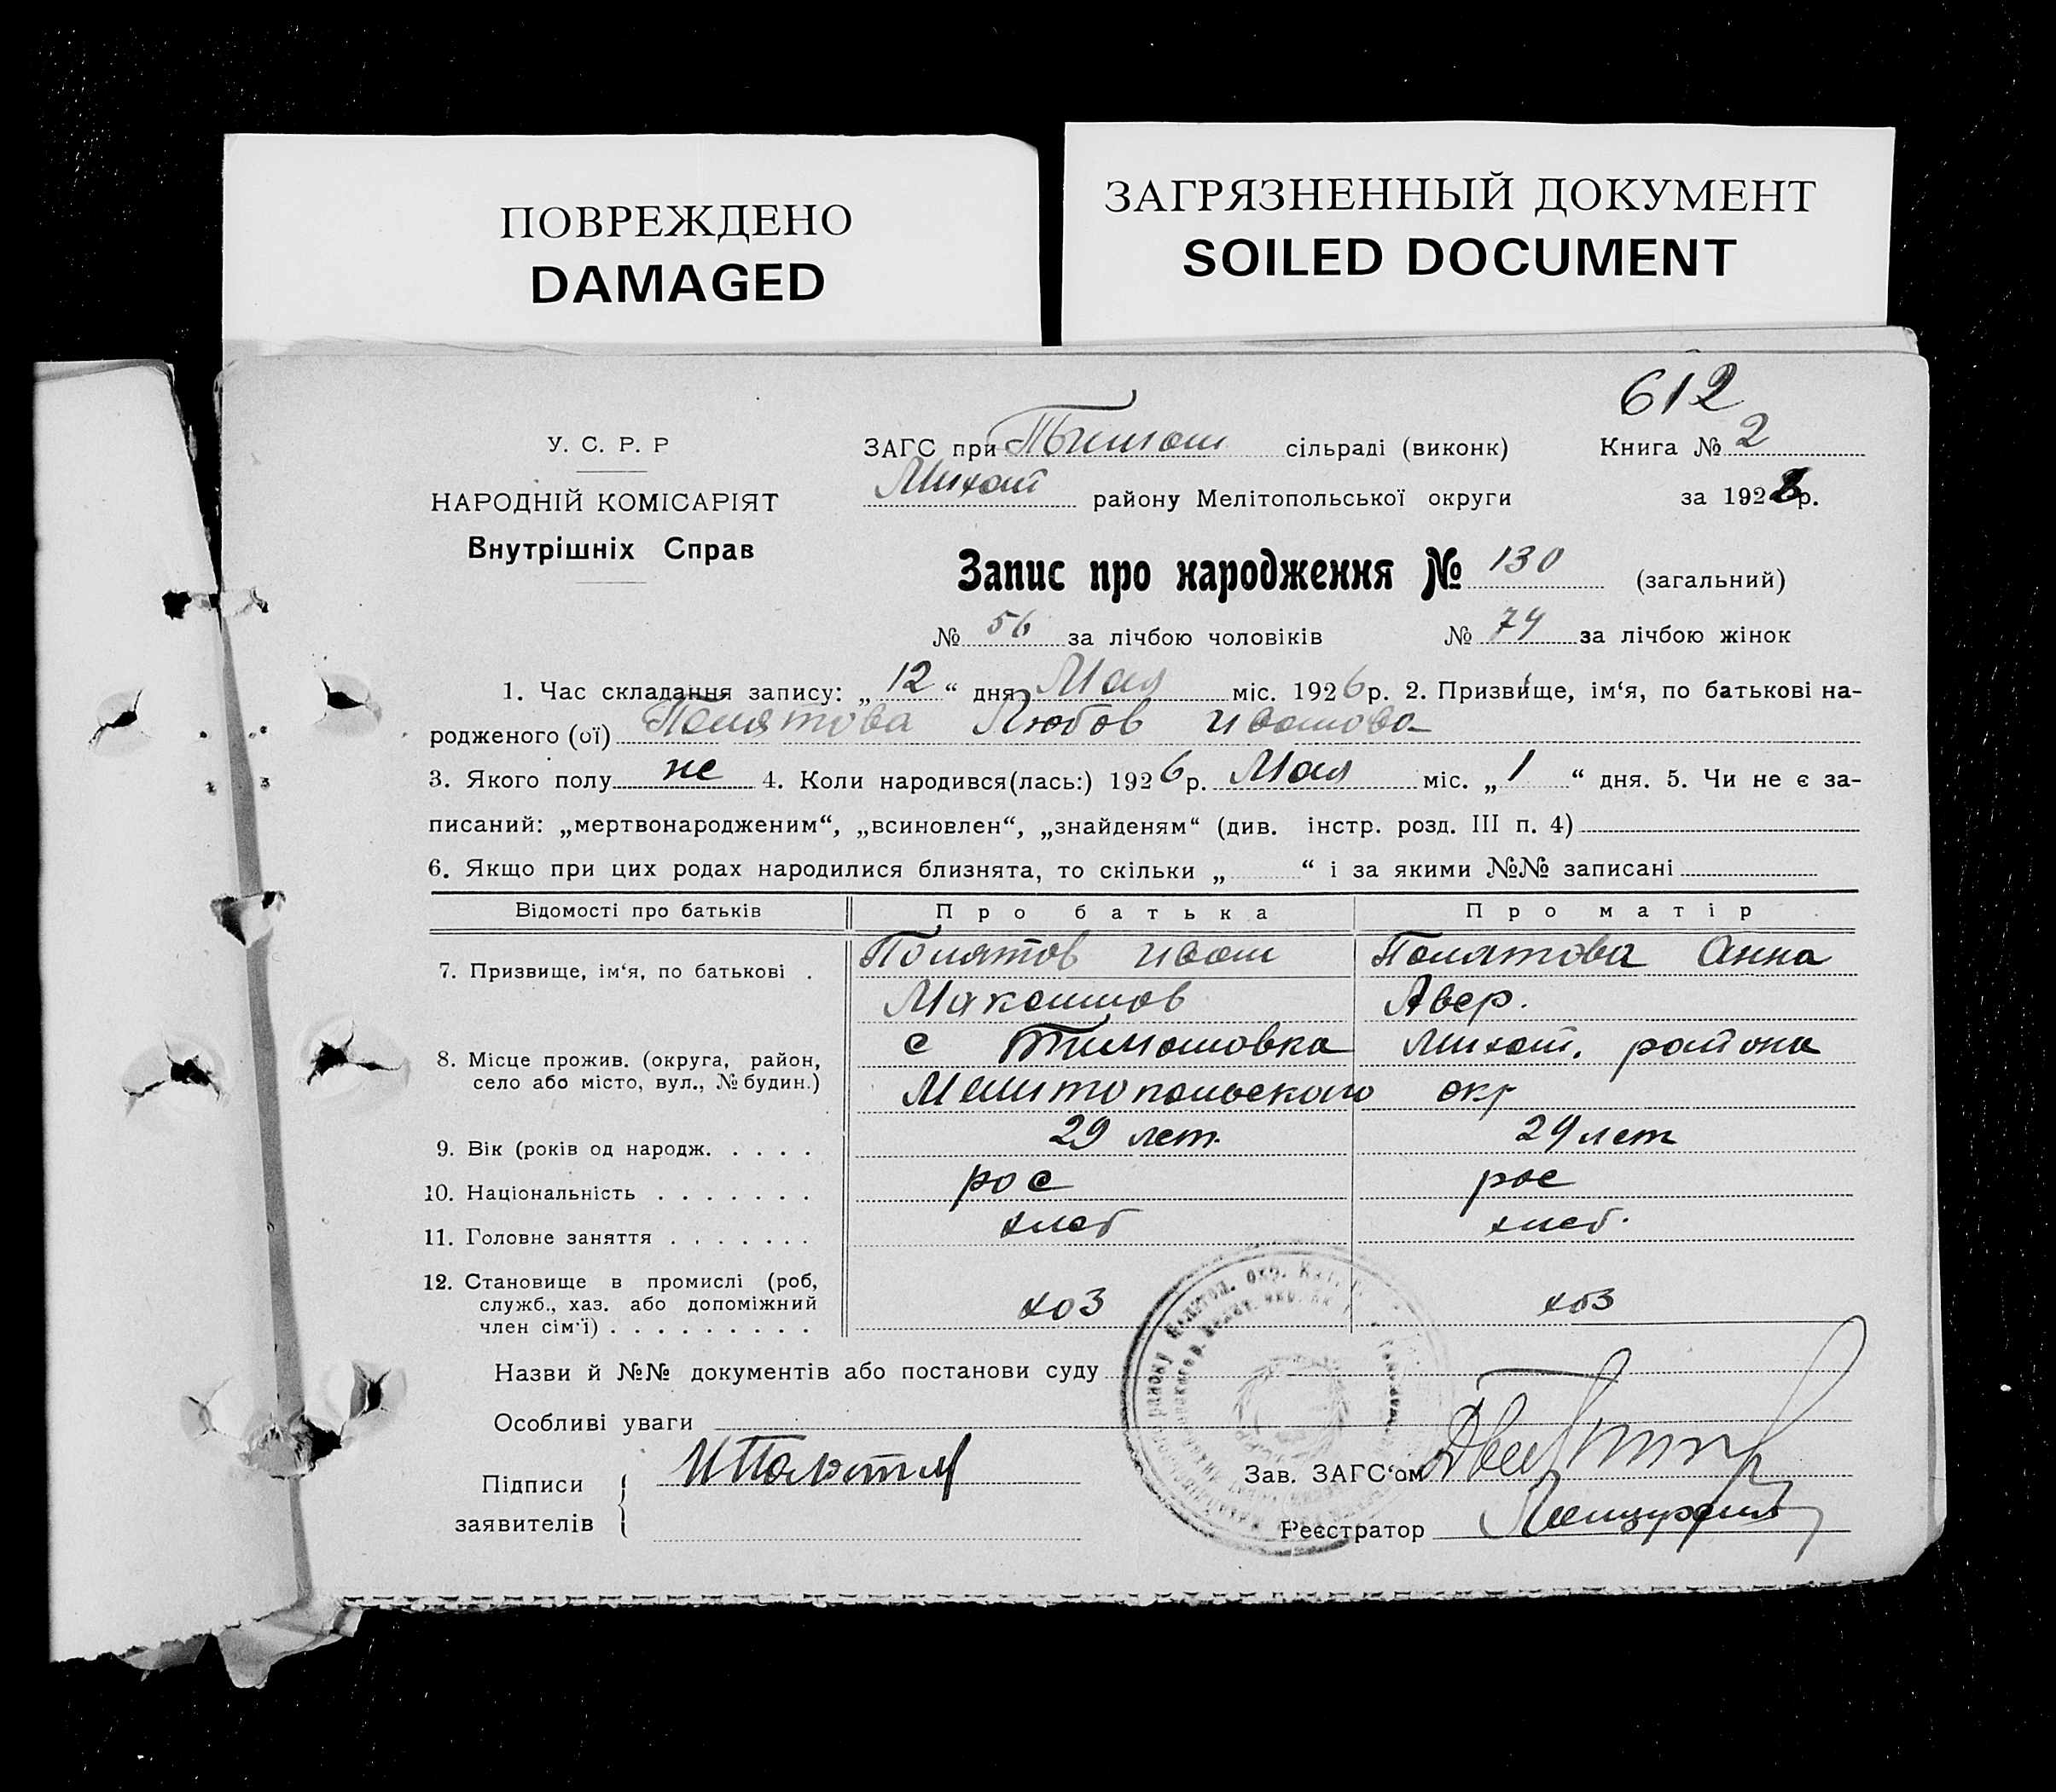 ПОВРЕЖДЕНО
DAMAGED
ЗАГРЯЗНЕННЫЙ ДОКУМЕНТ
SOILED DOCUMENT
612
У. С. Р. Р
НАРОДНІЙ КОМІСАРІЯТ
Внутрішніх Справ
ЗАГС при Тимош сільраді (виконк)
Михай району Мелітопольської округи
Книга № 2
за 192 р.
Запис про народження № 130 (загальний)
№ 56 за лічбою чоловіків № 74 за лічбою жінок
1. Час складання запису: „ 12 “ дня Мая міс. 1926 р. 2. Призвище, ім‘я, по батькові на-
родженого (ої) Полятова Любов Иванова
3. Якого полу же 4. Коли народився(лась:) 1926 р. Мая міс. „ 1 “ дня. 5. Чи не є за-
писаний: „мертвонародженим“, „всиновлен“, „знайденям“ (див. інстр. розд. III п. 4)
6. Якщо при цих родах народилися близнята, то скільки „ “ і за якими №№ записані
Відомості про батьків Про батька Про матір
7. Призвище, ім‘я, по батькові . Полятов Иван Полятова Анна
Максимов Авер.
8. Місце прожив. (округа, район, с Тимошовка Михай. района
село або місто, вул., № будин.) Мелитопольского окр
9. Вік (років од народж. . . . . 29 лет. 29 лет
10. Національність . . . . . . . рос рос
11. Головне заняття . . . . . . . хлеб хлеб.
12. Становище в промислі (роб,
служб., хаз. або допоміжний хоз хоз
член сім‘ї) . . . . . . . . .
Назви й №№ документів або постанови суду
Особливі уваги
Підписи
заявителів
Зав. ЗАГС‘ом
Реєстратор